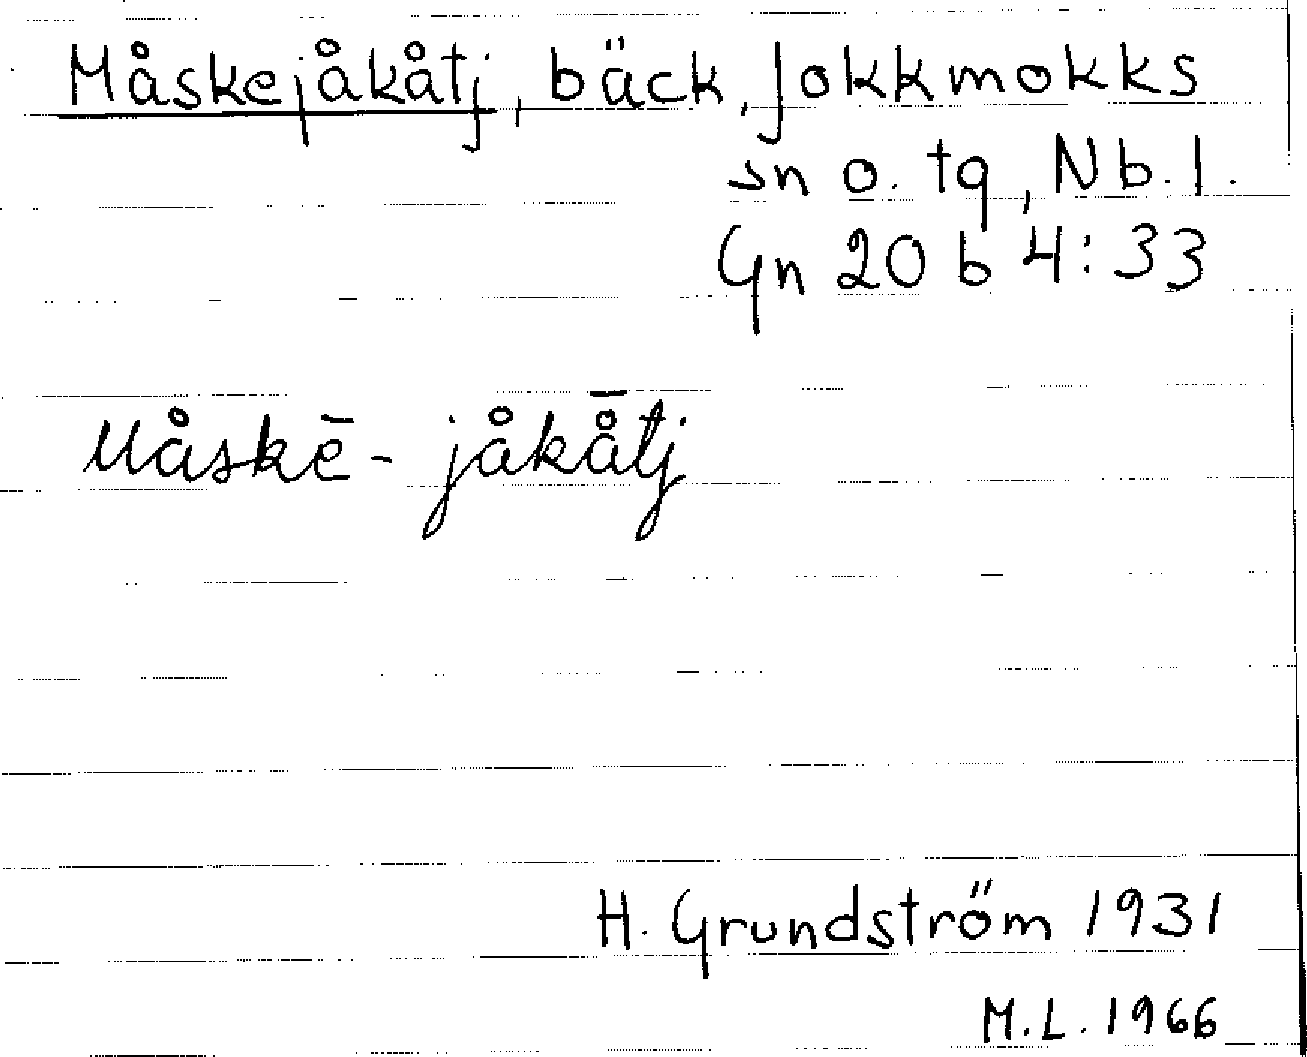 Måskejåkåtj, bäck, Jokkmokks
sn o. tg, Nb.l.
Gn 20 b 4:33
Måskē - jåkå̄tj
H. Grundström 1931
M.L. 1966